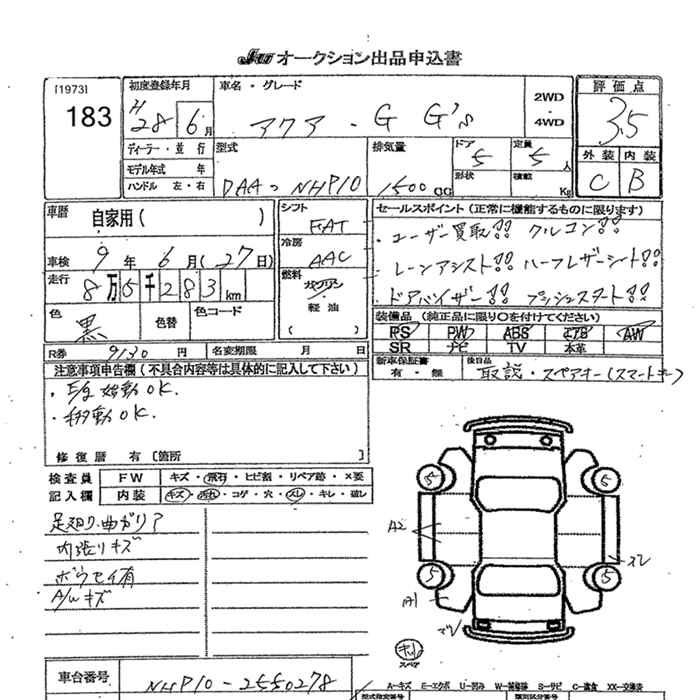 JU オークション出品申込書
[1973]
183
初度登録年月
H28年6月
車名・グレード
アクア・G G's
2WD
4WD
評価点
3.5
ディーラー・並行
モデル年式 年
ハンドル 左・右
型式
DAA-NHP10
排気量
1500CC
ドア
5
形状
定員
5人
積載
Kg
外装 内装
C B
車歴
自家用( )
車検 9年6月(27日)
走行 8万5千283km
色
黒
色替
色コード
シフト
FAT
冷房
AAC
燃料
ガソリン
軽油
( )
セールスポイント(正常に機能するものに限ります)
・ユーザー買取!! クルコン!!
・レーンアシスト!! ハーフレザーシート!!
・ドアバイザー!! プッシュスタート!!
装備品(純正品に限り○を付けてください)
PS PW ABS エアB AW
SR ナビ TV 本革
新車保証書
有・無
後日品
取説・スペアキー(スマートキー)
R券 9130円 名変期限 月 日
注意事項申告欄(不具合内容等は具体的に記入して下さい)
・E/g始動OK.
・移動OK.
修復歴 有 [箇所 ]
検査員 FW キズ・飛石・ヒビ割・リペア跡・×要
記入欄 内装 キズ・汚れ・コゲ・穴・スレ・キレ・破レ
足廻り、曲がりア
内張りキズ
ボウセイ有
A/wキズ
A2
A1
スレ
5 5
5 5
キル
スペア
車台番号 NHP10-2550278
A=キズ E=エクボ U=凹み W=補修跡 S=サビ C=腐食 XX=交換済
型式指定番号
類別区分番号